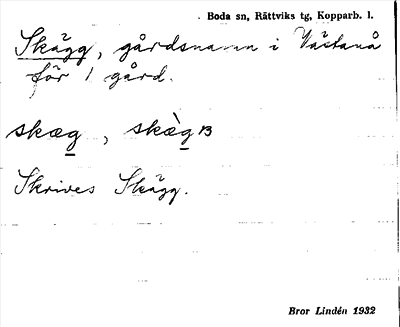 Boda sn, Rättviks tg, Kopparb. l.
Skägg, gårdsnamn i Västanå
för 1 gård.
skæg, skæ̀g 13
Skrives Skägg.
Bror Lindén 1932